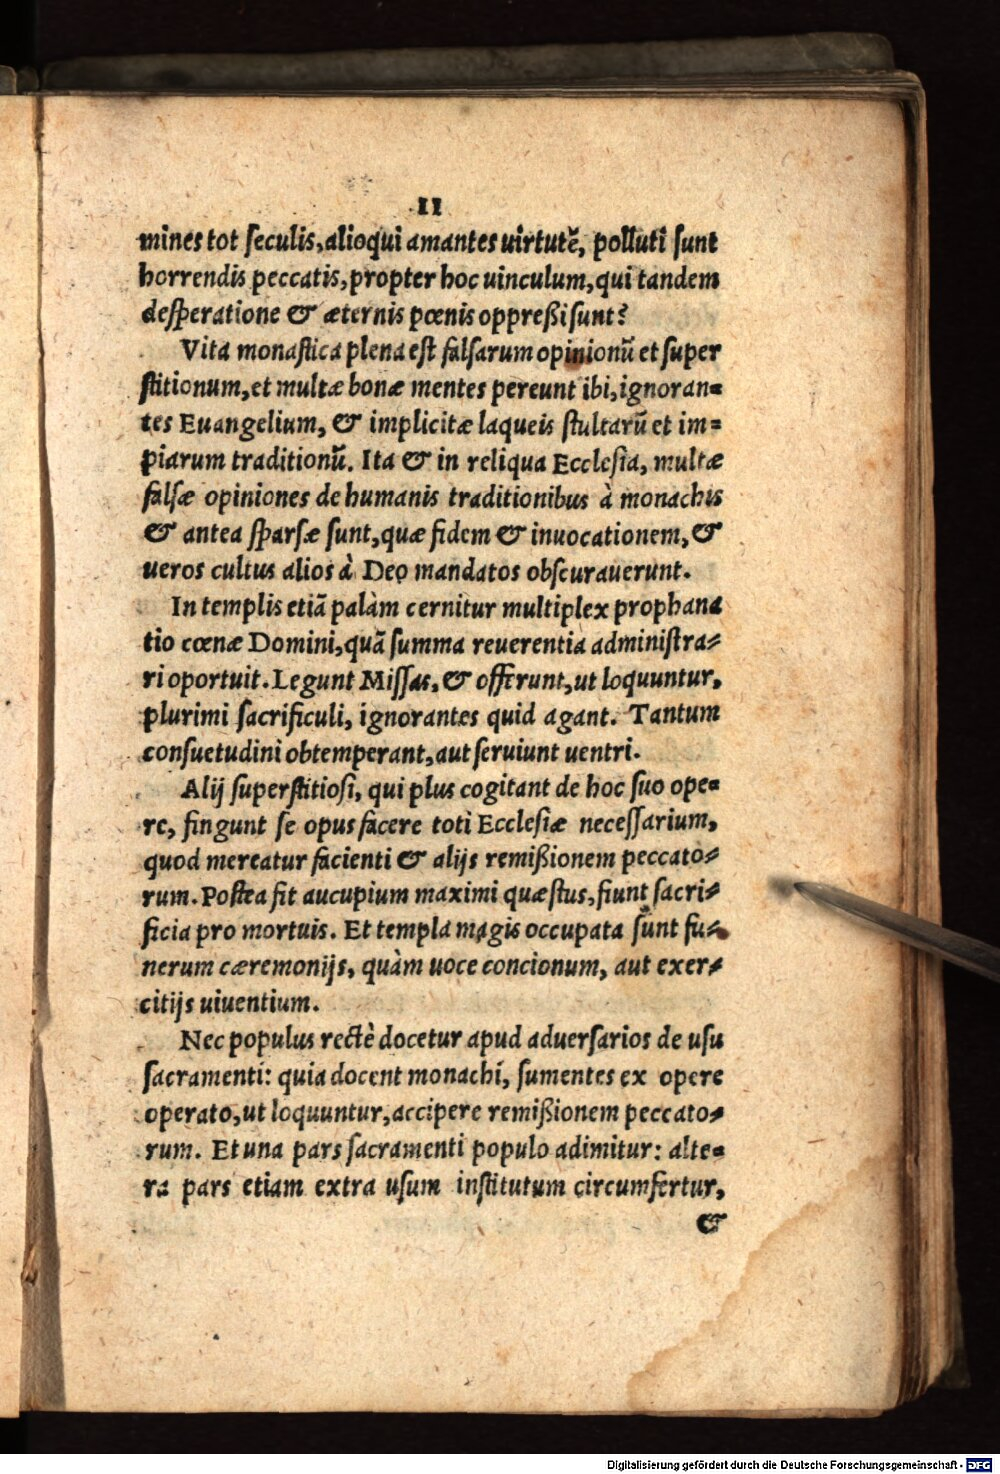 11
mines tot ſeculis, alioqui amantes uirtutẽ, polluti ſunt
horrendis peccatis, propter hoc uinculum, qui tandem
deſperatione & æternis pœnis oppreßi ſunt?
Vita monaſtica plena eſt falſarum opinionũ et ſuper
ſtitionum, et multæ bonæ mentes pereunt ibi, ignoran=
tes Euangelium, & implicitæ laqueis ſtultarũ et im=
piarum traditionũ. Ita & in reliqua Eccleſia, multæ
falſæ opiniones de humanis traditionibus à monachis
& antea ſparſæ ſunt, quæ fidem & inuocationem, &
ueros cultus alios à Deo mandatos obſcurauerunt.
In templis etiã palàm cernitur multiplex prophana
tio cœnæ Domini, quã ſumma reuerentia adminiſtra=
ri oportuit. Legunt Miſſas, & offerunt, ut loquuntur,
plurimi ſacrificuli, ignorantes quid agant. Tantum
conſuetudini obtemperant, aut ſeruiunt uentri.
Alij ſuperſtitioſi, qui plus cogitant de hoc ſuo ope=
re, fingunt ſe opus facere toti Eccleſiæ neceſſarium,
quod mereatur facienti & alijs remißionem peccato=
rum. Poſtea fit aucupium maximi quæſtus, fiunt ſacri=
ficia pro mortuis. Et templa magis occupata ſunt fu=
nerum cæremonijs, quàm uoce concionum, aut exer=
citijs uiuentium.
Nec populus rectè docetur apud aduerſarios de uſu
ſacramenti: quia docent monachi, ſumentes ex opere
operato, ut loquuntur, accipere remißionem peccato=
rum. Et una pars ſacramenti populo adimitur: alte=
ra pars etiam extra uſum inſtitutum circumfertur,
&
Digitalisierung gefördert durch die Deutsche Forschungsgemeinschaft - DFG